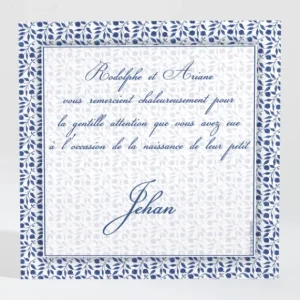 Rodolphe et Ariane
vous remercient chaleureusement pour
la gentille attention que vous avez eue
à l'occasion de la naissance de leur petit
Jehan